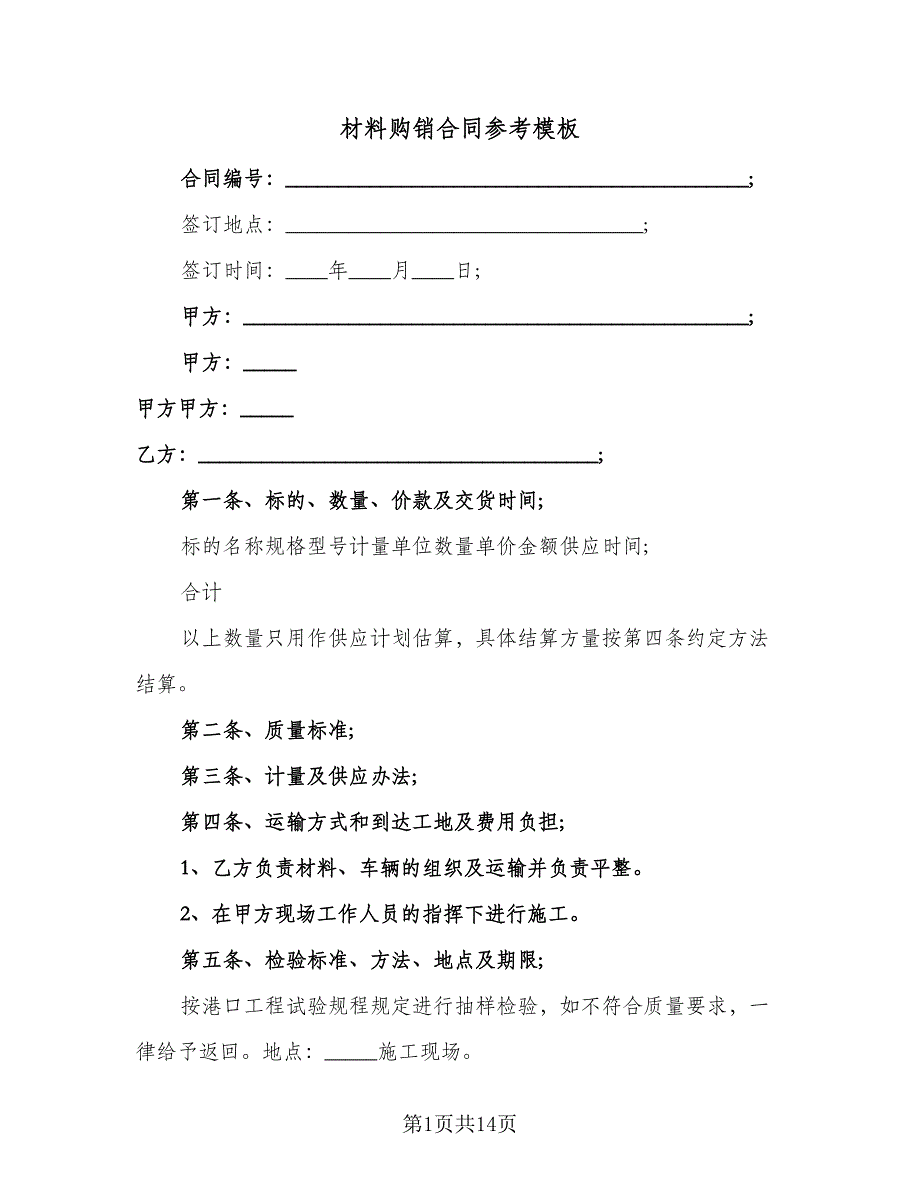 材料购销合同参考模板
合同编号：____________________________________________;
签订地点：__________________________________;
签订时间：____年____月____日;
甲方：________________________________________________;
甲方：_____
甲方甲方：_____
乙方：______________________________________;
第一条、标的、数量、价款及交货时间;
标的名称规格型号计量单位数量单价金额供应时间;
合计
以上数量只用作供应计划估算，具体结算方量按第四条约定方法
结算。
第二条、质量标准;
第三条、计量及供应办法;
第四条、运输方式和到达工地及费用负担;
1、乙方负责材料、车辆的组织及运输并负责平整。
2、在甲方现场工作人员的指挥下进行施工。
第五条、检验标准、方法、地点及期限;
按港口工程试验规程规定进行抽样检验，如不符合质量要求，一
律给予返回。地点：_____施工现场。
第1页共14页